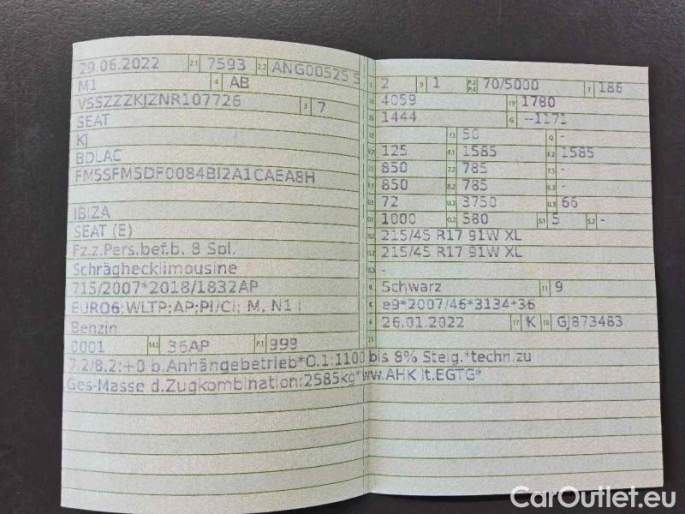 29.06.2022 2.1 7593 2.2 ANG00525 5
M1 4 AB
VSSZZZKJZNR107726 3 7
SEAT
KJ
BDLAC
FM5SFM5DF0084BI2A1CAEA8H
IBIZA
SEAT (E)
Fz.z.Pers.bef.b. 8 Spl.
Schräghecklimousine
715/2007*2018/1832AP
EURO6;WLTP;AP;PI/CI; M, N1 I
Benzin
0001 14.1 36AP P.1 999
7.2/8.2:+0 b.Anhängebetrieb*O.1:1100 bis 8% Steig.*techn.zu
Ges-Masse d.Zugkombination:2585kg*ww.AHK lt.EGTG*
2 9 1 70/5000 T 186
4059 1780
1444 G --1171
50 Q -
125 1585 1585
850 785 -
850 785 -
72 3750 66
1000 580 5 -
215/45 R17 91W XL
215/45 R17 91W XL
-
Schwarz 11 9
K e9*2007/46*3134*36
6 26.01.2022 17 K 16 GJ873483
21
CarOutlet.eu